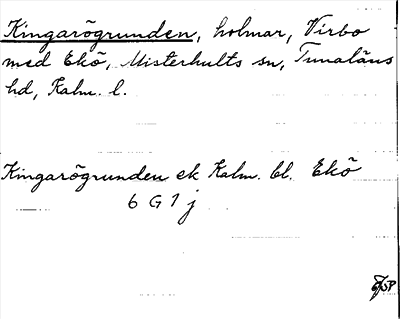 Kingarögrunden, holmar, Virbo
med Ekö, Misterhults sn, Tunaläns
hd, Kalm. l.
Kingarögrunden ek Kalm. bl. Ekö
6 G 7 j